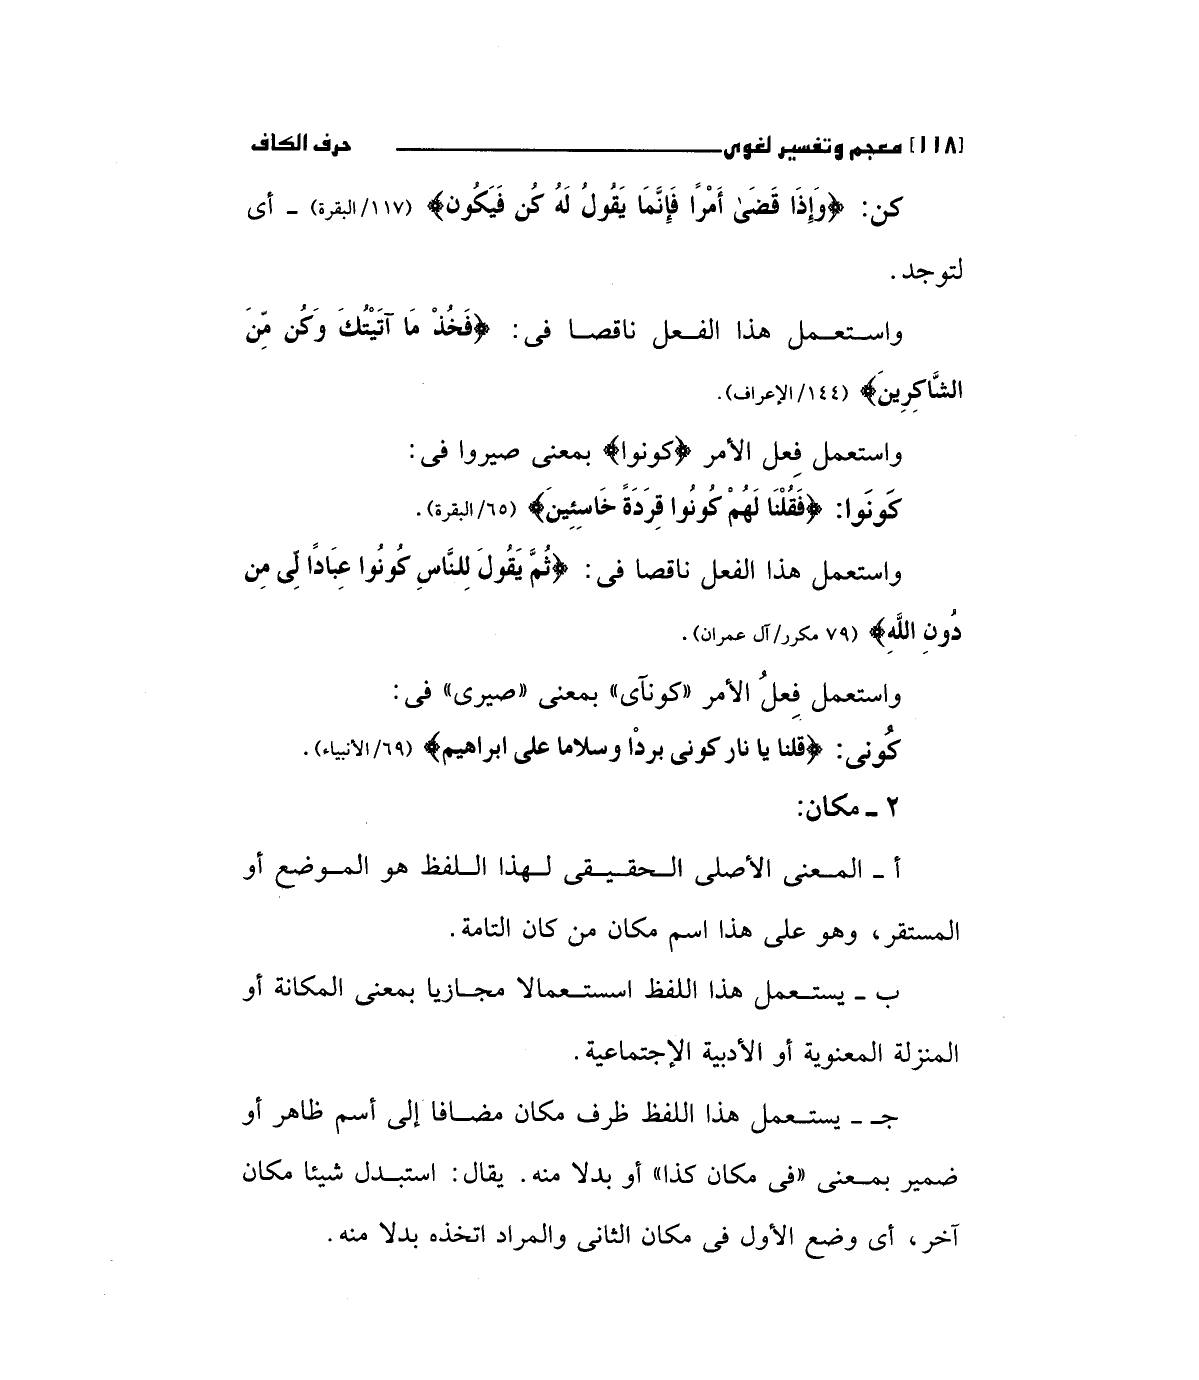 [١١٨] معجم وتفسير لغوى حرف الكاف
كن: ﴿وَإِذَا قَضَىٰ أَمْرًا فَإِنَّمَا يَقُولُ لَهُ كُن فَيَكُون﴾ (١١٧/ البقرة) - أى
لتوجد.
واستعمل هذا الفعل ناقصا فى: ﴿فَخُذْ مَا آتَيْتُكَ وَكُن مِّنَ
الشَّاكِرِينَ﴾ (١٤٤/ الإعراف).
واستعمل فِعل الأمر ﴿كونوا﴾ بمعنى صيروا فى:
كَونَوا: ﴿فَقُلْنَا لَهُمْ كُونُوا قِرَدَةً خَاسِئِينَ﴾ (٦٥/ البقرة).
واستعمل هذا الفعل ناقصا فى: ﴿ثُمَّ يَقُولَ لِلنَّاسِ كُونُوا عِبَادًا لِّى مِن
دُونِ اللَّهِ﴾ (٧٩ مكرر/ آل عمران).
واستعمل فِعلُ الأمر «كونآى» بمعنى «صيرى» فى:
كُونى: ﴿قلنا يا نار كونى بردْا وسلاما على ابراهيم﴾ (٦٩/ الأنبياء).
٢ - مكان:
أ - المعنى الأصلى الحقيقى لهذا اللفظ هو الموضع أو
المستقر، وهو على هذا اسم مكان من كان التامة.
ب - يستعمل هذا اللفظ اسستعمالا مجازيا بمعنى المكانة أو
المنزلة المعنوية أو الأدبية الإجتماعية.
جـ - يستعمل هذا اللفظ ظرف مكان مضافا إلى أسم ظاهر أو
ضمير بمعنى «فى مكان كذا» أو بدلا منه. يقال: استبدل شيئا مكان
آخر، أى وضع الأول فى مكان الثانى والمراد اتخذه بدلا منه.